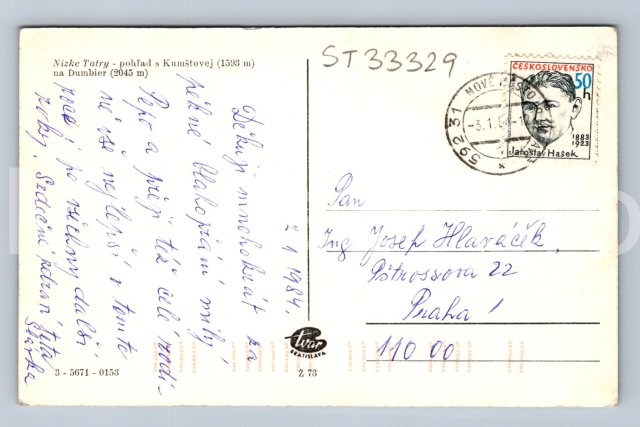 Nizke Tatry - pohľad s Kumštovej (1593 m)
na Ďumbier (2045 m)
ST 33329
2. 1. 1984.
Děkuji mnohokrát za
pěkné blahopřání milý
Pepo a přeji též celé rodi-
ně vše nejlepší v tomto
roce i po všechny další
roky. Srdečně zdraví Táta
Slávka
3 - 5671 - 0153
tvar
BRATISLAVA
Z 73
592 31 NOVÉ MĚSTO
-3.1.84-
ČESKOSLOVENSKO
50 h
1883
1923
Jaroslav Hašek
Pan
Ing Josef Hlaváček,
Pštrossova 22
Praha 1
110 00